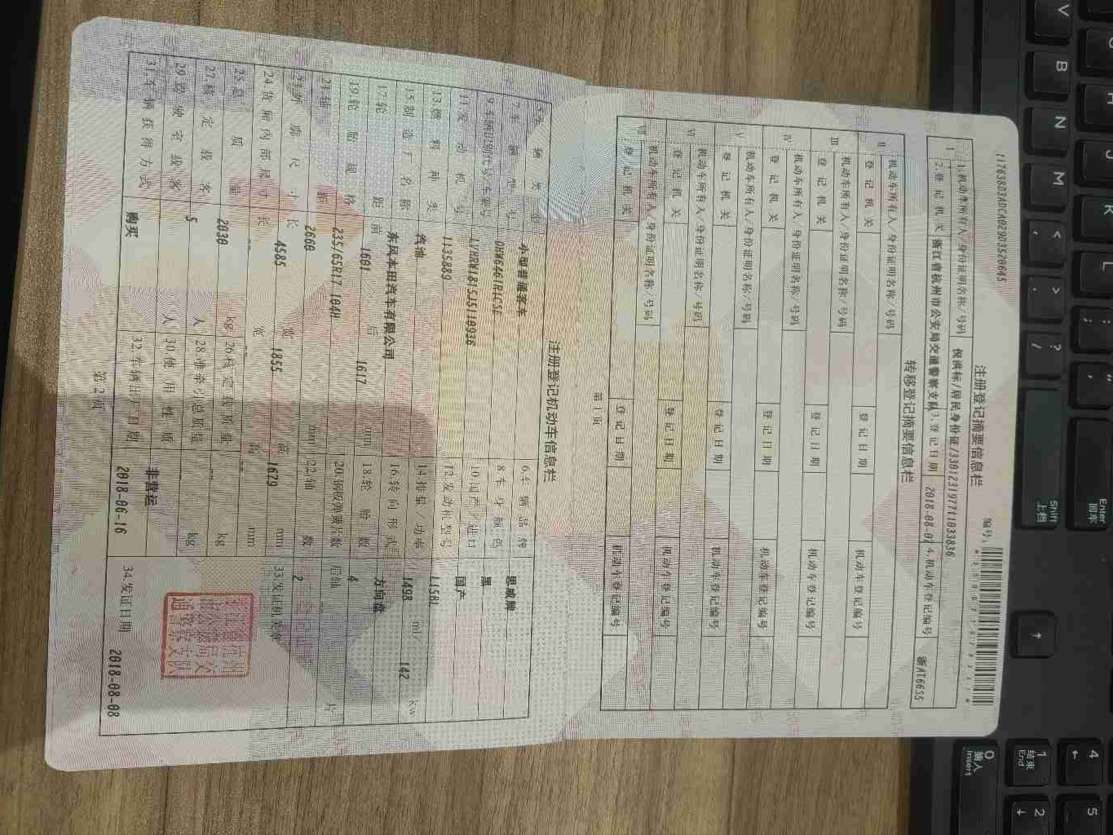 注册登记摘要信息栏
编号:
1.机动车所有人/身份证明名称/号码 /居民身份证/330123197711033836
2.登记机关 浙江省杭州市公安局交通警察支队 3.登记日期 2018-08-0 4.机动车登记编号 浙AT6655
转移登记摘要信息栏
II 机动车所有人/身份证明名称/号码
登记机关 登记日期 机动车登记编号
III 机动车所有人/身份证明名称/号码
登记机关 登记日期 机动车登记编号
IV 机动车所有人/身份证明名称/号码
登记机关 登记日期 机动车登记编号
V 机动车所有人/身份证明名称/号码
登记机关 登记日期 机动车登记编号
VI 机动车所有人/身份证明名称/号码
登记机关 登记日期 机动车登记编号
VII 机动车所有人/身份证明名称/号码
登记机关 登记日期 机动车登记编号
第1页
注册登记机动车信息栏
5.车辆类型 小型普通客车 6.车辆品牌 思威牌
7.车辆型号 8.车身颜色 黑
9.车辆识别代号/车架号 10.国产/进口 国产
11.发动机号 1135889 12.发动机型号 L15BL
13.燃料种类 汽油 14.排量/功率 1498 ml/ 142 kw
15.制造厂名称 东风本田汽车有限公司 16.转向形式 方向盘
17.轮距 前 1601 后 1617 mm 18.轮胎数 4
19.轮胎规格 235/65R17 104H 20.钢板弹簧片数 后轴 片
21.轴距 2660 mm 22.轴数 2
23.外廓尺寸 长 4585 宽 1855 高 1679 mm 33.发证机关章
24.货厢内部尺寸 长 宽 高 mm
25.总质量 2030 kg 26.核定载质量 kg
27.核定载客 5 人 28.准牵引总质量 kg
29.驾驶室载客 人 30.使用性质 非营运
31.车辆获得方式 购买 32.车辆出厂日期 2018-06-16 34.发证日期 2018-08-08
第2页
Enter
回车
Shift
上档
V
B
N
M
<
>
?
/
0
插入
Insert
1
结束
End
2
4
5